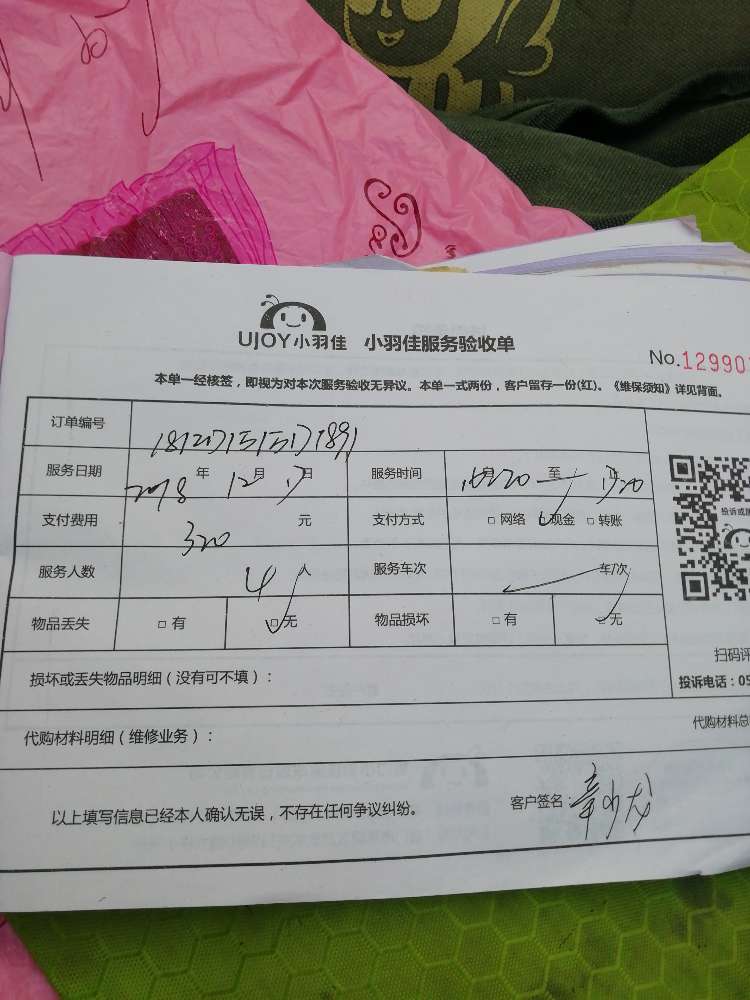 UJOY小羽佳 小羽佳服务验收单
No.12990
本单一经核签，即视为对本次服务验收无异议。本单一式两份，客户留存一份(红)。《维保须知》详见背面。
订单编号
服务日期 2018 年 12 月 17 日 服务时间 16:20 至 17:20
支付费用 320 元 支付方式 □ 网络 ☑ 现金 □ 转账
服务人数 4 人 服务车次 车/次
投诉或
物品丢失 □ 有 ☑ 无 物品损坏 □ 有 ☑ 无
扫码评
损坏或丢失物品明细（没有可不填）：
投诉电话：05
代购材料明细（维修业务）：
代购材料总
以上填写信息已经本人确认无误，不存在任何争议纠纷。 客户签名：